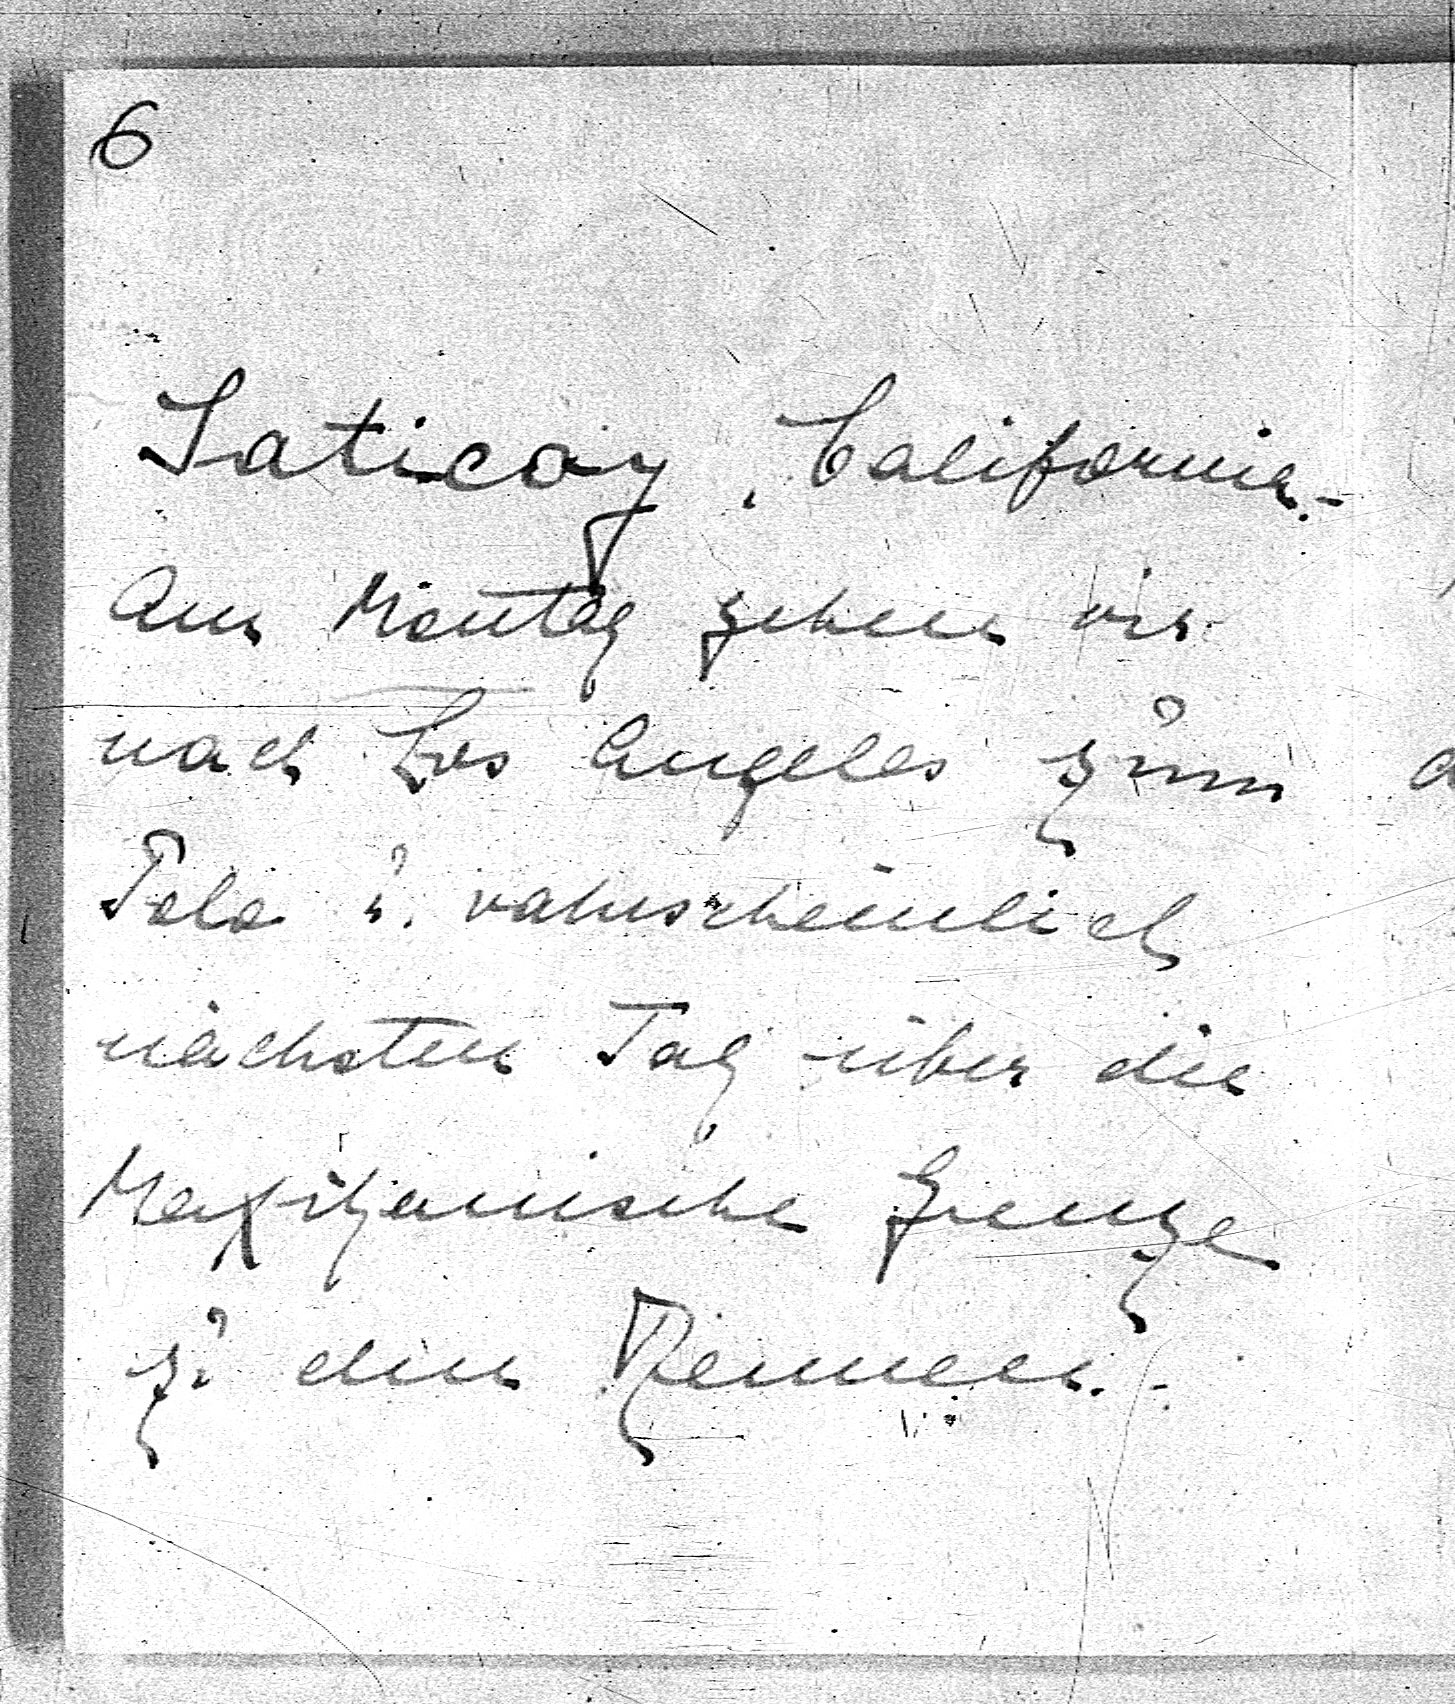 6
Saticoy, California.-
Am Montag gehen wir
nach Los Angeles zum
Polo u. wahrscheinlich
nächsten Tag über die
Mexikanische Grenze
zu den Rennen.-